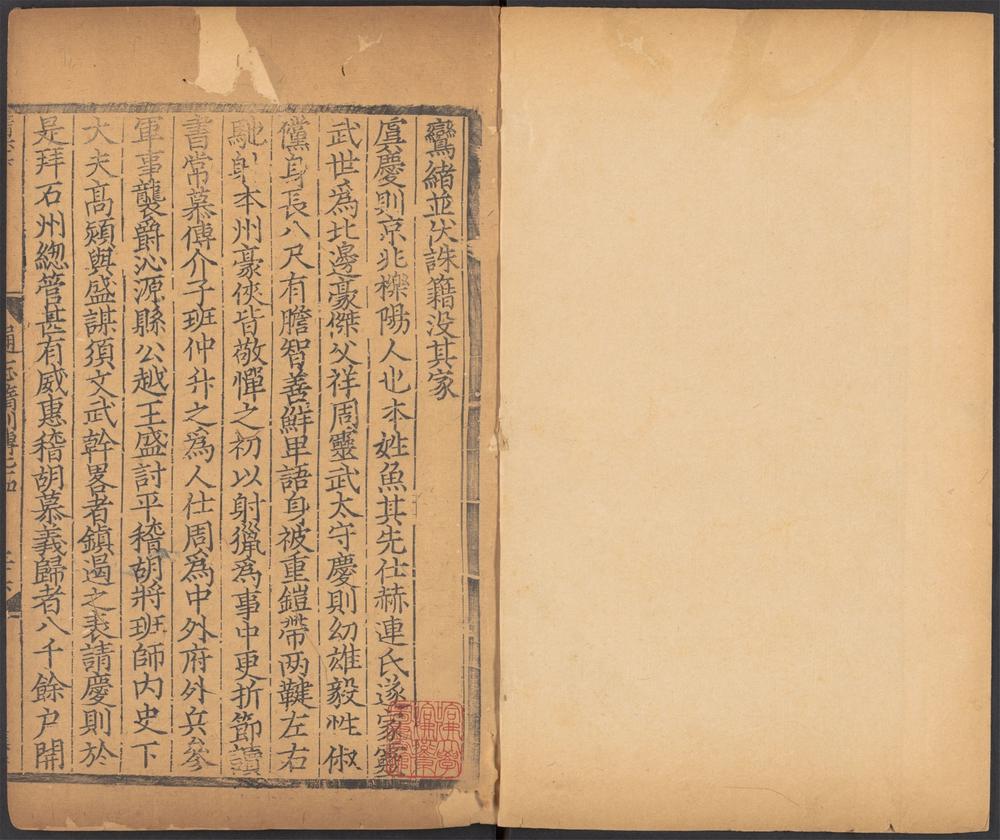 鸞緒並伏誅籍没其家
虞慶則京兆櫟陽人也本姓魚其先仕赫連氏遂家靈
武世爲北邊豪傑父祥周靈武太守慶則幼雄毅性俶
儻身長八尺有膽智善鮮卑語身被重鎧帶两鞬左右
馳射本州豪俠皆敬憚之初以射獵爲事中更折節讀
書常慕傅介子班仲升之爲人仕周爲中外府外兵參
軍事襲爵沁源縣公越王盛討平稽胡將班師内史下
大夫高熲與盛謀須文武幹畧者鎮遏之表請慶則於
是拜石州緫管甚有威惠稽胡慕義歸者八千餘户開